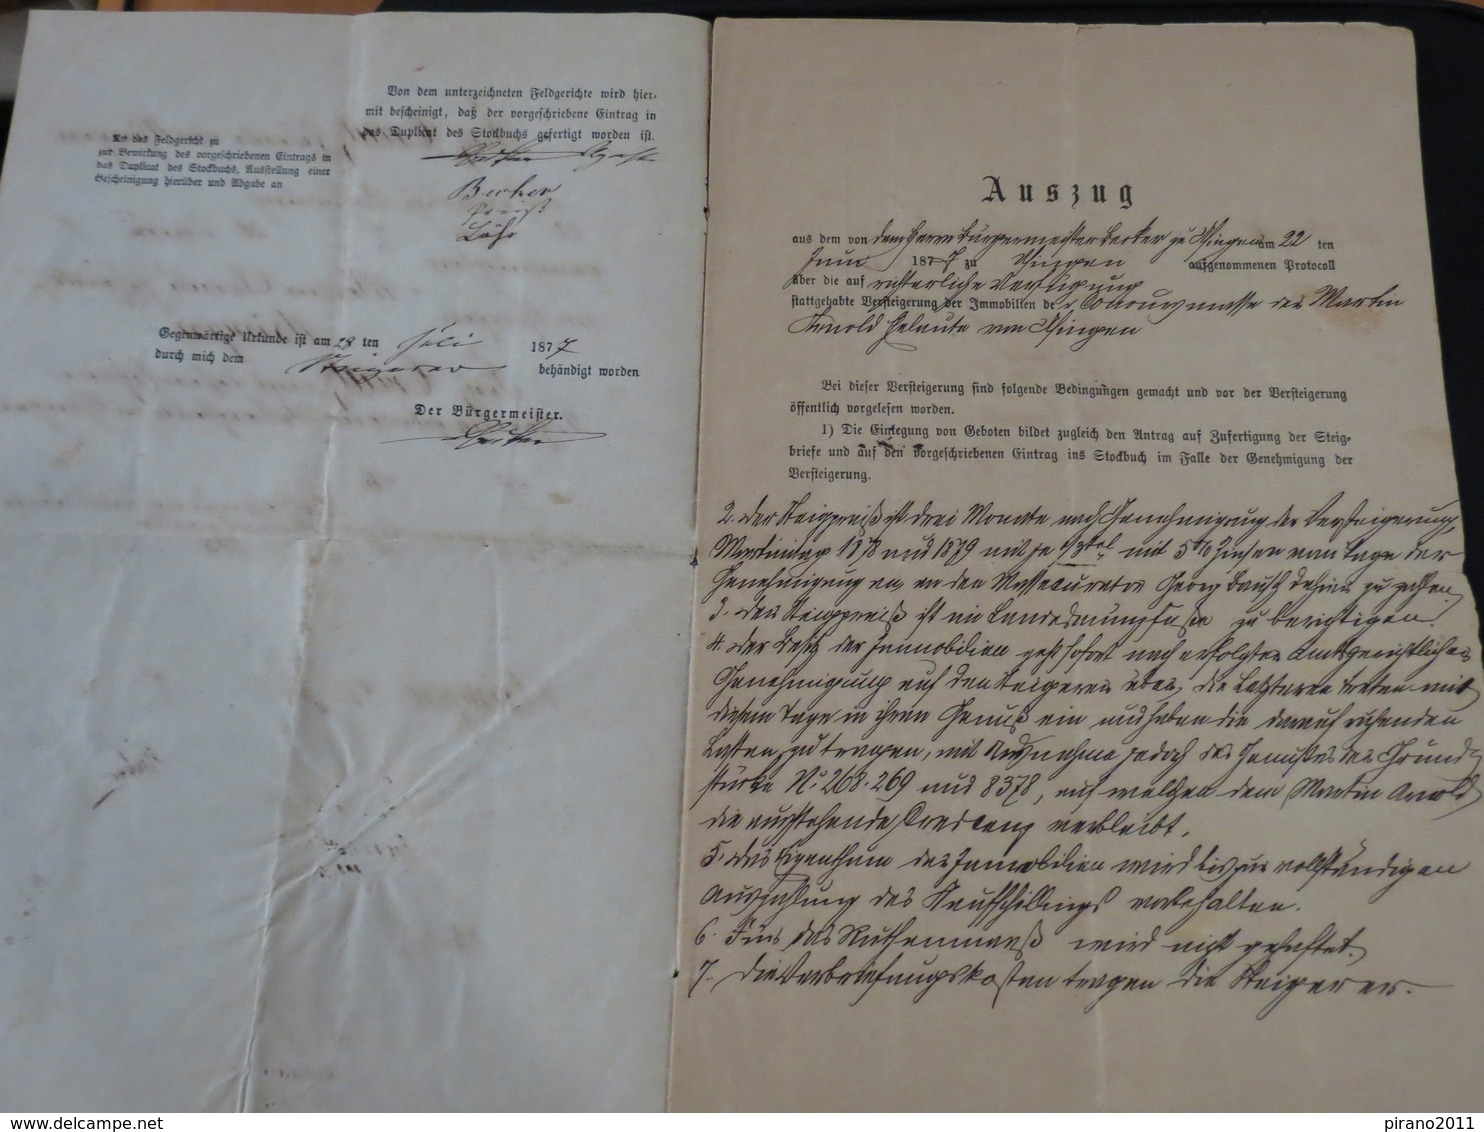 Von dem unterzeichneten Feldgerichte wird hier-
mit bescheinigt, daß der vorgeschriebene Eintrag in
das Duplicat des Stockbuchs gefertigt worden ist.
An das Feldgericht zu
zur Bewirkung des vorgeschriebenen Eintrags in
das Duplicat des Stockbuchs, Ausstellung einer
Bescheinigung hierüber und Abgabe an
Becker
Löhr
Gegenwärtige Urkunde ist am 28 ten Juli 1877
durch mich dem Steigerer behändigt worden
Der Bürgermeister.
Auszug
aus dem von dem Herrn Bürgermeister Becker zu am 22 ten
Juni 1877 zu aufgenommenen Protocoll
über die auf richterliche Verfügung
stattgehabte Versteigerung der Immobilien der Concursmasse des Martin
Arnold Eheleute von
Bei dieser Versteigerung sind folgende Bedingungen gemacht und vor der Versteigerung
öffentlich vorgelesen worden.
1) Die Einlegung von Geboten bildet zugleich den Antrag auf Zufertigung der Steig-
briefe und auf den vorgeschriebenen Eintrag ins Stockbuch im Falle der Genehmigung der
Versteigerung.
2. Der Steigpreiß ist drei Monate nach Genehmigung der Versteigerung,
Martinitag 1878 und 1879 mit je 1/3tel mit 5% Zinsen vom Tage der
Genehmigung an, an den Massecurator Georg zu zahlen.
3. Der Steigpreiß ist in zu berichtigen.
4. Der Besitz der Immobilien geht sofort nach erfolgter amtsgerichtlicher
Genehmigung auf den Steigerer über, die Letzteren treten mit
diesem Tage in ihren Genuß ein und haben die darauf ruhenden
Lasten zu tragen, mit Ausnahme jedoch des Genusses der Grund-
stücke No 268. 269 und 8378, auf welchen dem Martin Arnold
die ausstehende Crescenz verbleibt.
5. Das Eigenthum der Immobilien wird bis zur vollständigen
Auszahlung des Kaufschillings vorbehalten.
6. Für das Ruthenmaaß wird nicht gehaftet.
7. Die Verbriefungskosten tragen die Steigerer.
delcampe.net
pirano2011